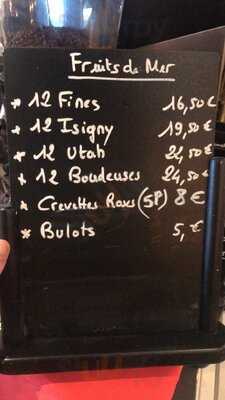 Fruits de Mer
* 12 Fines 16,50€
* 12 Isigny 19,50€
* 12 Utah 21,50€
* 12 Boudeuses 24,50€
* Crevettes Roses (5P) 8€
* Bulots 5,€